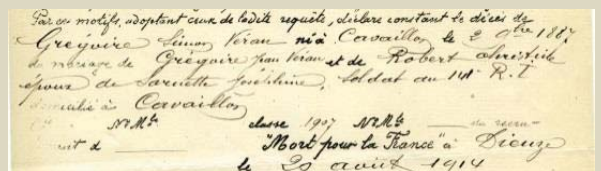 Par ces motifs, adoptant ceux de ladite requête, déclare constant le décès de
Grégoire Simon Véran né à Cavaillon le 2 9bre 1887
du mariage de Grégoire Jean Véran et de Robert
époux de Sarnette Joséphine, soldat au 141e R.I
domicilié à Cavaillon
No Mle classe 1907 No Mle au recru-
"Mort pour la France" à Dieuze
le 20 août 1914